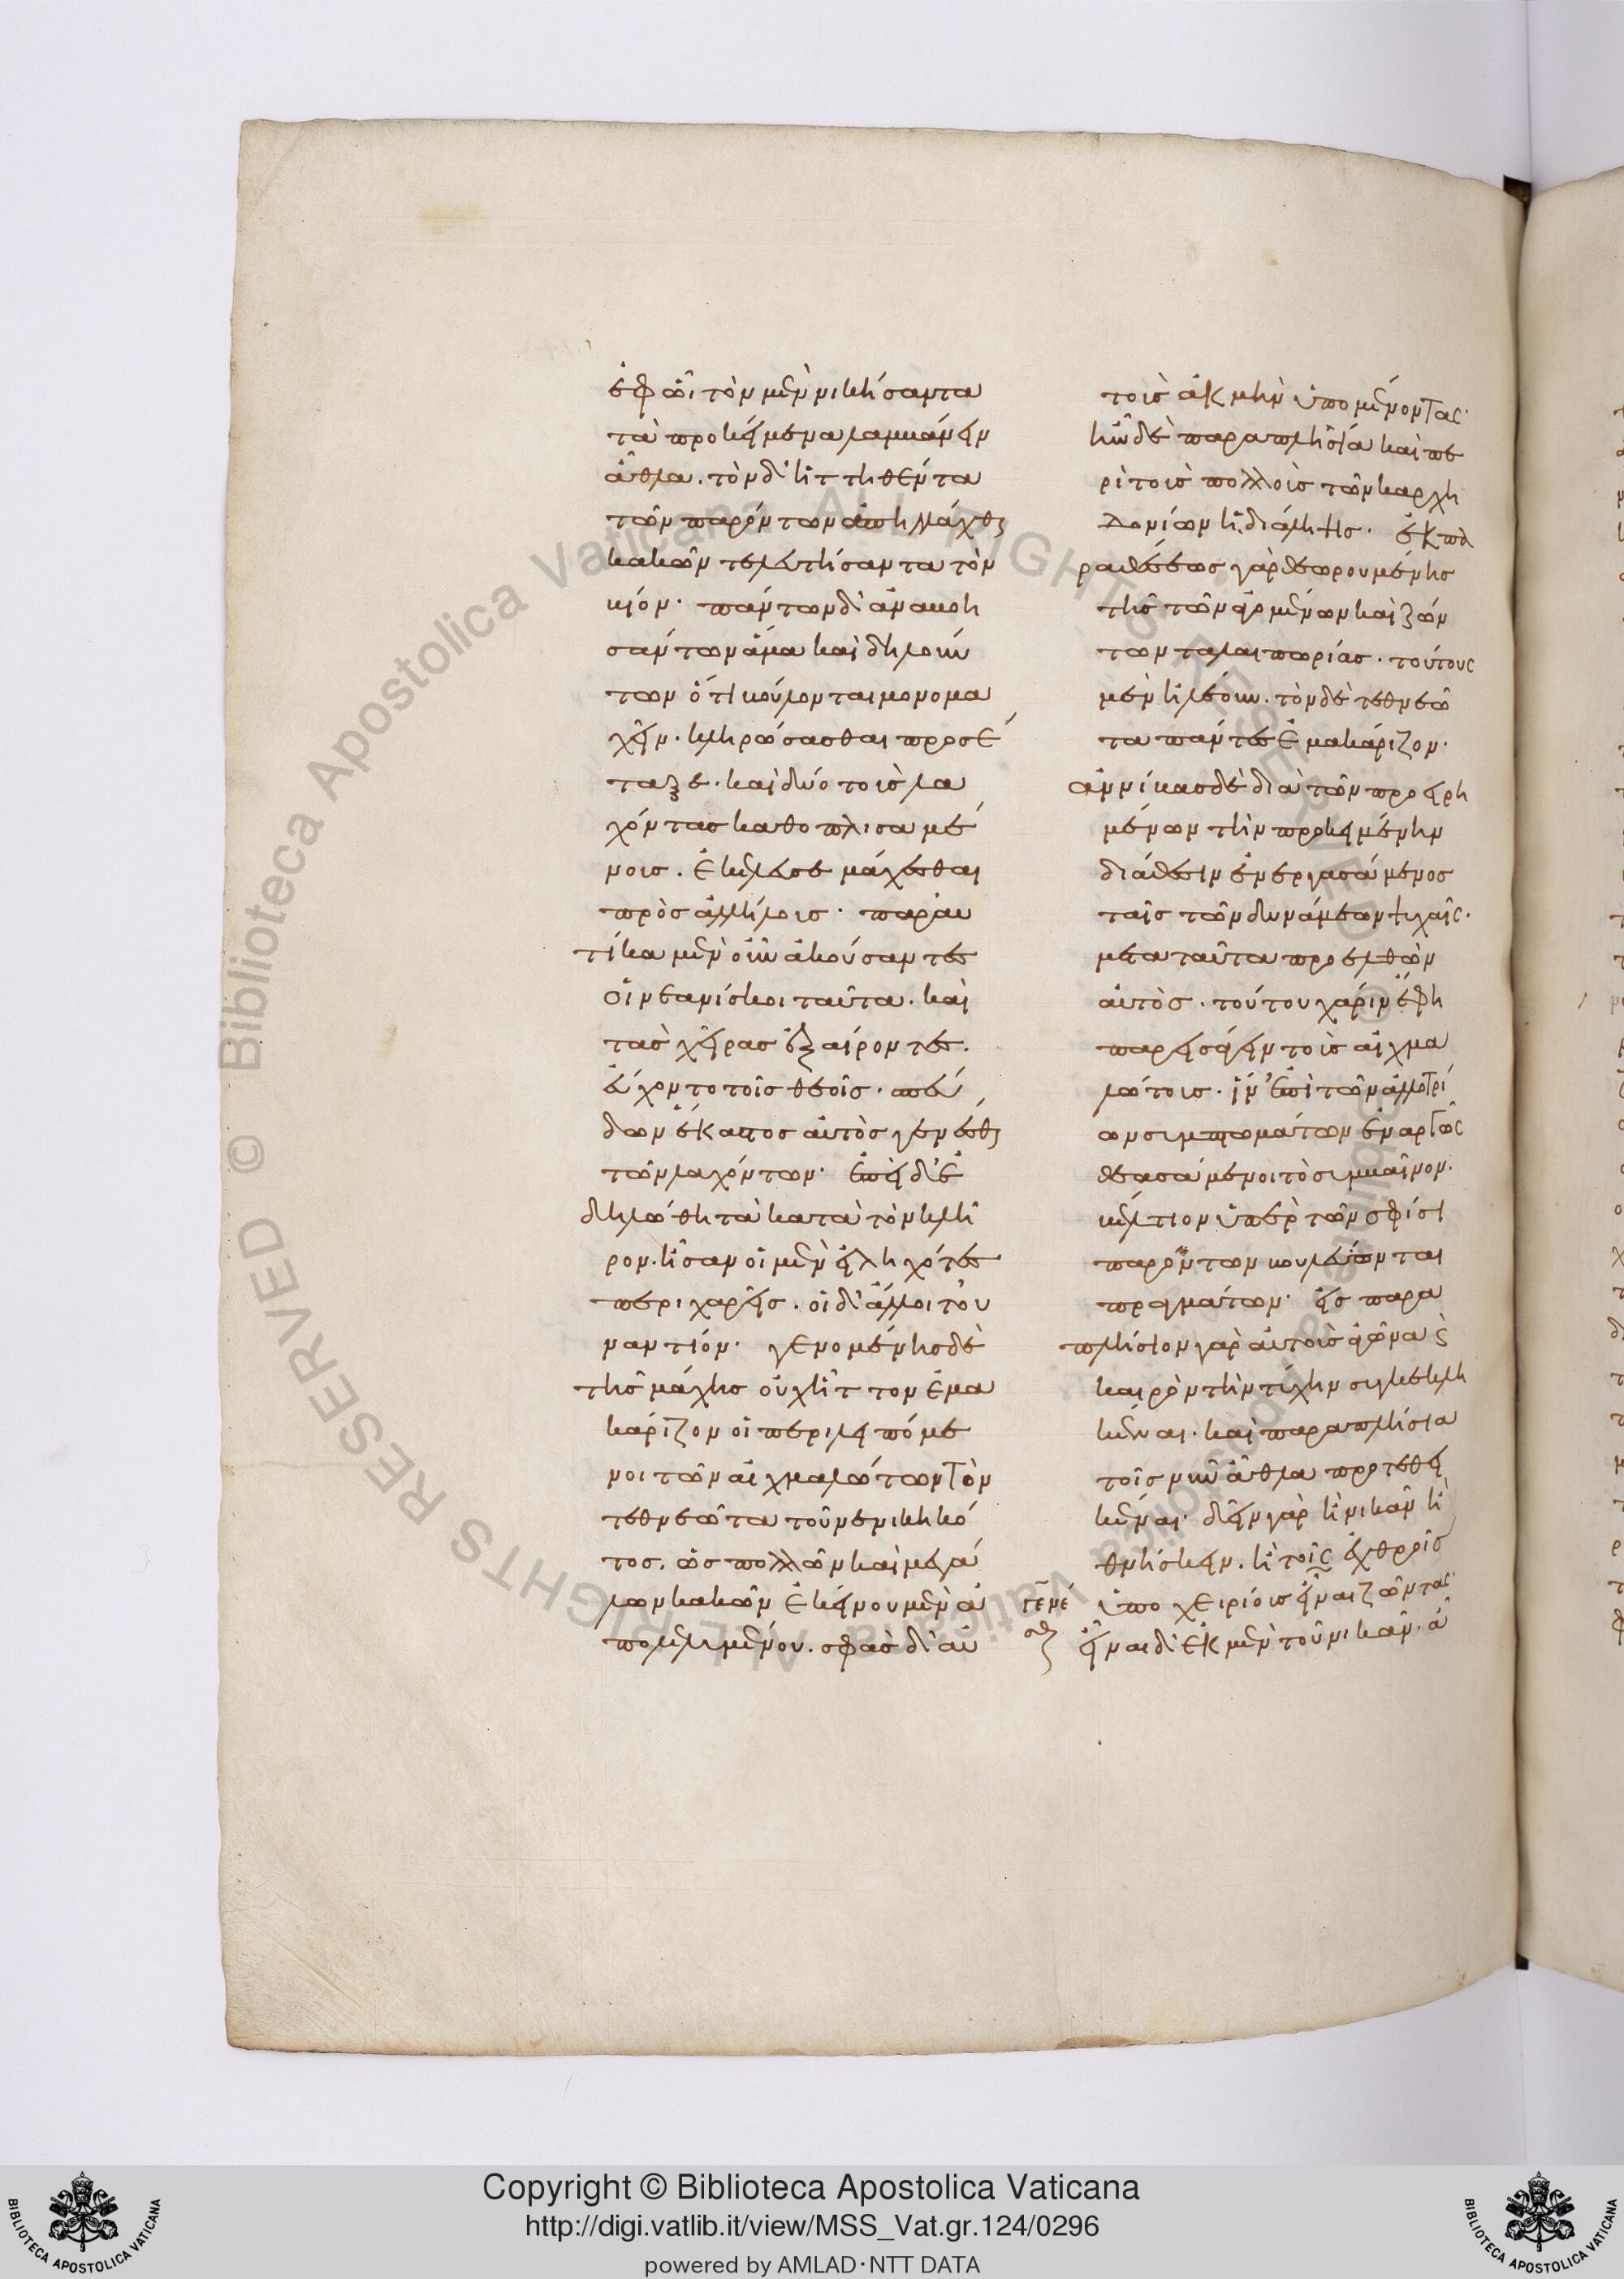 ἐφ ὧι τὸν μὲν νικήσαντα
τὰ προκείμενα λαμβάνειν
ἆθλα. τὸν δ' ἡττηθέντα
τῶν παρόντων ἀπηλλάχθαι
κακῶν τελευτήσαντα τὸν
βίον. πάντων δ' ἀναβοη
σάντων ἅμα καὶ δηλούν
των ὅτι βούλονται μονομα
χεῖν. κληρώσασθαι προσέ
ταξε. καὶ δύο τοὺς λα
χόντας καθοπλισαμέ
νους. ἐκέλευσε μάχεσθαι
πρὸς ἀλλήλους. παραυ
τίκα μὲν οὖν ἀκούσαντες
οἱ νεανίσκοι ταῦτα. καὶ
τὰς χεῖρας ἐξαίροντες.
εὔχοντο τοῖς θεοῖς. σπεύ
δων ἕκαστος αὐτὸς γενέσθαι
τῶν λαχόντων. ἐπεὶ δ' ἐ
δηλώθη τὰ κατὰ τὸν κλῆ
ρον. ἦσαν οἱ μὲν εἰληχότες
περιχαρεῖς. οἱ δ' ἄλλοι τοὐ
ναντίον. γενομένης δὲ
τῆς μάχης οὐχ ἧττον ἐμα
κάριζον οἱ περιλειπόμε
νοι τῶν αἰχμαλώτων τὸν
τεθνεῶτα τοῦ νενικηκό
τος. ὡς πολλῶν καὶ μεγά
λων κακῶν ἐκείνου μὲν ἀ
πολελυμένου. σφᾶς δ' αὐ
τοὺς ἀκμὴν ὑπομένοντας.
ἦν δὲ παραπλησία καὶ πε
ρὶ τοὺς πολλοὺς τῶν καρχη
δονίων ἡ διάληψις. ἐκ πα
ραθέσεως γὰρ θεωρουμένης
τῆς τῶν ἀγομένων καὶ ζών
των ταλαιπωρίας. τούτους
μὲν ἠλέουν. τὸν δὲ τεθνεῶ
τα πάντες ἐμακάριζον.
ἀννίβας δὲ διὰ τῶν προειρη
μένων τὴν προκειμένην
διάθεσιν ἐνεργασάμενος
ταῖς τῶν δυνάμεων ψυχαῖς.
μετα ταῦτα προελθὼν
αὐτὸς. τούτου χάριν ἔφη
παρεισάγειν τοὺς αἰχμα
λώτους. ἵν' ἐπὶ τῶν ἀλλοτρί
ων συμπτωμάτων ἐναργῶς
θεασάμενοι τὸ συμβαῖνον.
βέλτιον ὑπὲρ τῶν σφίσι
παρόντων βουλεύωνται
πραγμάτων. εἰς παρα
πλήσιον γὰρ αὐτοὺς ἀγῶνα καὶ
καιρὸν τὴν τύχην συγκεκλη
κέναι. καὶ παραπλήσια
τοῖς νῦν ἆθλα προτεθει
κέναι. δεῖν γὰρ ἢ νικᾶν ἢ
θνήσκειν. ἢ τοῖς ἐχθροῖς
ὑποχειρίους εἶναι ζῶντας.
γενέσθαι
εἶναι δ' ἐκ μὲν τοῦ νικᾶν. ἆ
Copyright © Biblioteca Apostolica Vaticana
http://digi.vatlib.it/view/MSS_Vat.gr.124/0296
powered by AMLAD·NTT DATA
BIBLIOTECA APOSTOLICA VATICANA
BIBLIOTECA APOSTOLICA VATICANA
© Biblioteca Apostolica Vaticana ALL RIGHTS RESERVED © Biblioteca Apostolica Vaticana ALL RIGHTS RESERVED